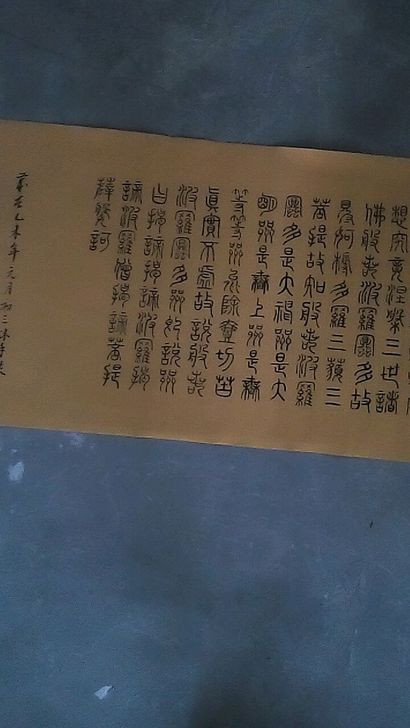 想究竟涅槃三世諸
佛般若波羅蜜多故
得阿耨多羅三藐三
菩提故知般若波羅
蜜多是大神咒是大
明咒是無上咒是無
等等咒能除壹切苦
眞實不虛故說般若
波羅蜜多咒即說咒
曰揭諦揭諦波羅揭
諦波羅僧揭諦菩提
薩婆訶
歲在乙未年元月初三沐手